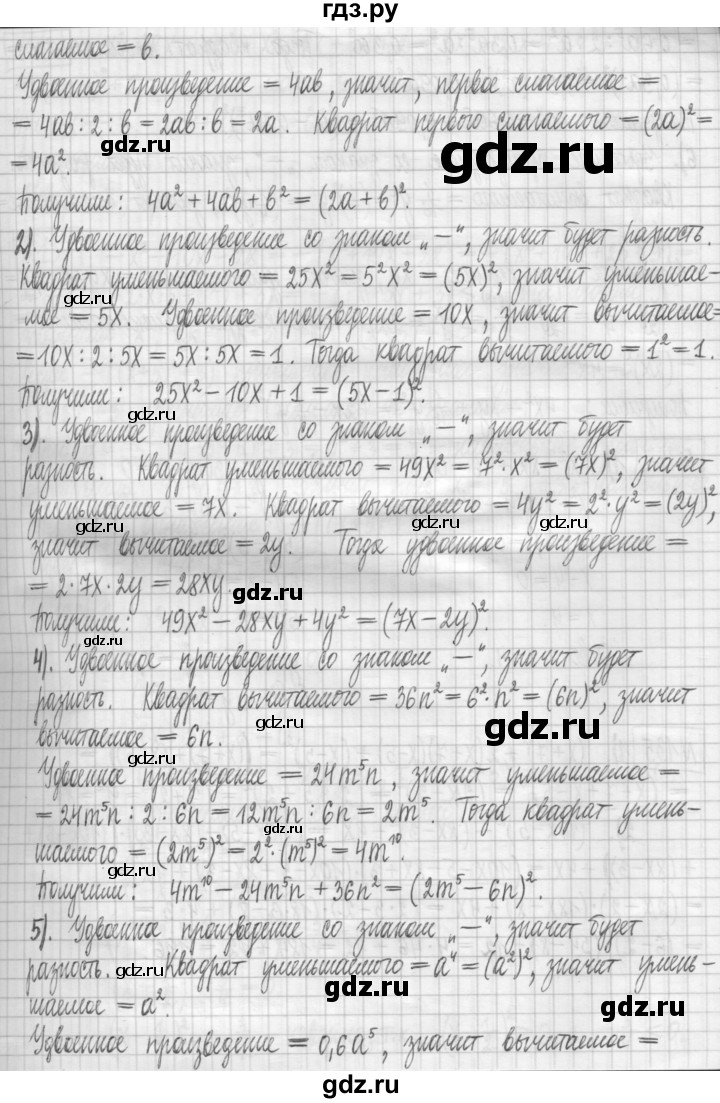 гдз.ру
слагаемое = в.
Удвоенное произведение = 4ав, значит, первое слагаемое =
= 4ав : 2 : в = 2ав : в = 2а. Квадрат первого слагаемого = (2а)² =
gdz.ru
gdz.ru
= 4а².
Получили: 4а² + 4ав + в² = (2а + в)².
2). Удвоенное произведение со знаком „—“, значит будет разность.
Квадрат уменьшаемого = 25х² = 5²х² = (5х)², значит уменьшае-
gdz.ru
gdz.ru
мое = 5х. Удвоенное произведение = 10х, значит вычитаемое =
= 10х : 2 : 5х = 5х : 5х = 1. Тогда квадрат вычитаемого = 1² = 1.
gdz.ru
Получили: 25х² – 10х + 1 = (5х – 1)².
gdz.ru
3). Удвоенное произведение со знаком „—“, значит будет
gdz.ru
разность. Квадрат уменьшаемого = 49х² = 7² · х² = (7х)², значит
уменьшаемое = 7х. Квадрат вычитаемого = 4у² = 2² · у² = (2у)²,
gdz.ru
gdz.ru
значит вычитаемое = 2у. Тогда удвоенное произведение =
= 2 · 7х · 2у = 28ху.
gdz.ru
Получили: 49х² – 28ху + 4у² = (7х – 2у)².
gdz.ru
4). Удвоенное произведение со знаком „—“, значит будет
gdz.ru
разность. Квадрат вычитаемого = 36n² = 6² · n² = (6n)², значит
gdz.ru
gdz.ru
вычитаемое = 6n.
gdz.ru
Удвоенное произведение = 24m⁵n, значит уменьшаемое =
= 24m⁵n : 2 : 6n = 12m⁵n : 6n = 2m⁵. Тогда квадрат умень-
gdz.ru
шаемого = (2m⁵)² = 2² · (m⁵)² = 4m¹⁰.
gdz.ru
Получили: 4m¹⁰ – 24m⁵n + 36n² = (2m⁵ – 6n)².
gdz.ru
5). Удвоенное произведение со знаком „—“, значит будет
gdz.ru
разность. Квадрат уменьшаемого = а⁴ = (а²)², значит умень-
gdz.ru
gdz.ru
шаемое = а².
gdz.ru
Удвоенное произведение = 0,6а⁵, значит вычитаемое =
gdz.ru
gdz.ru